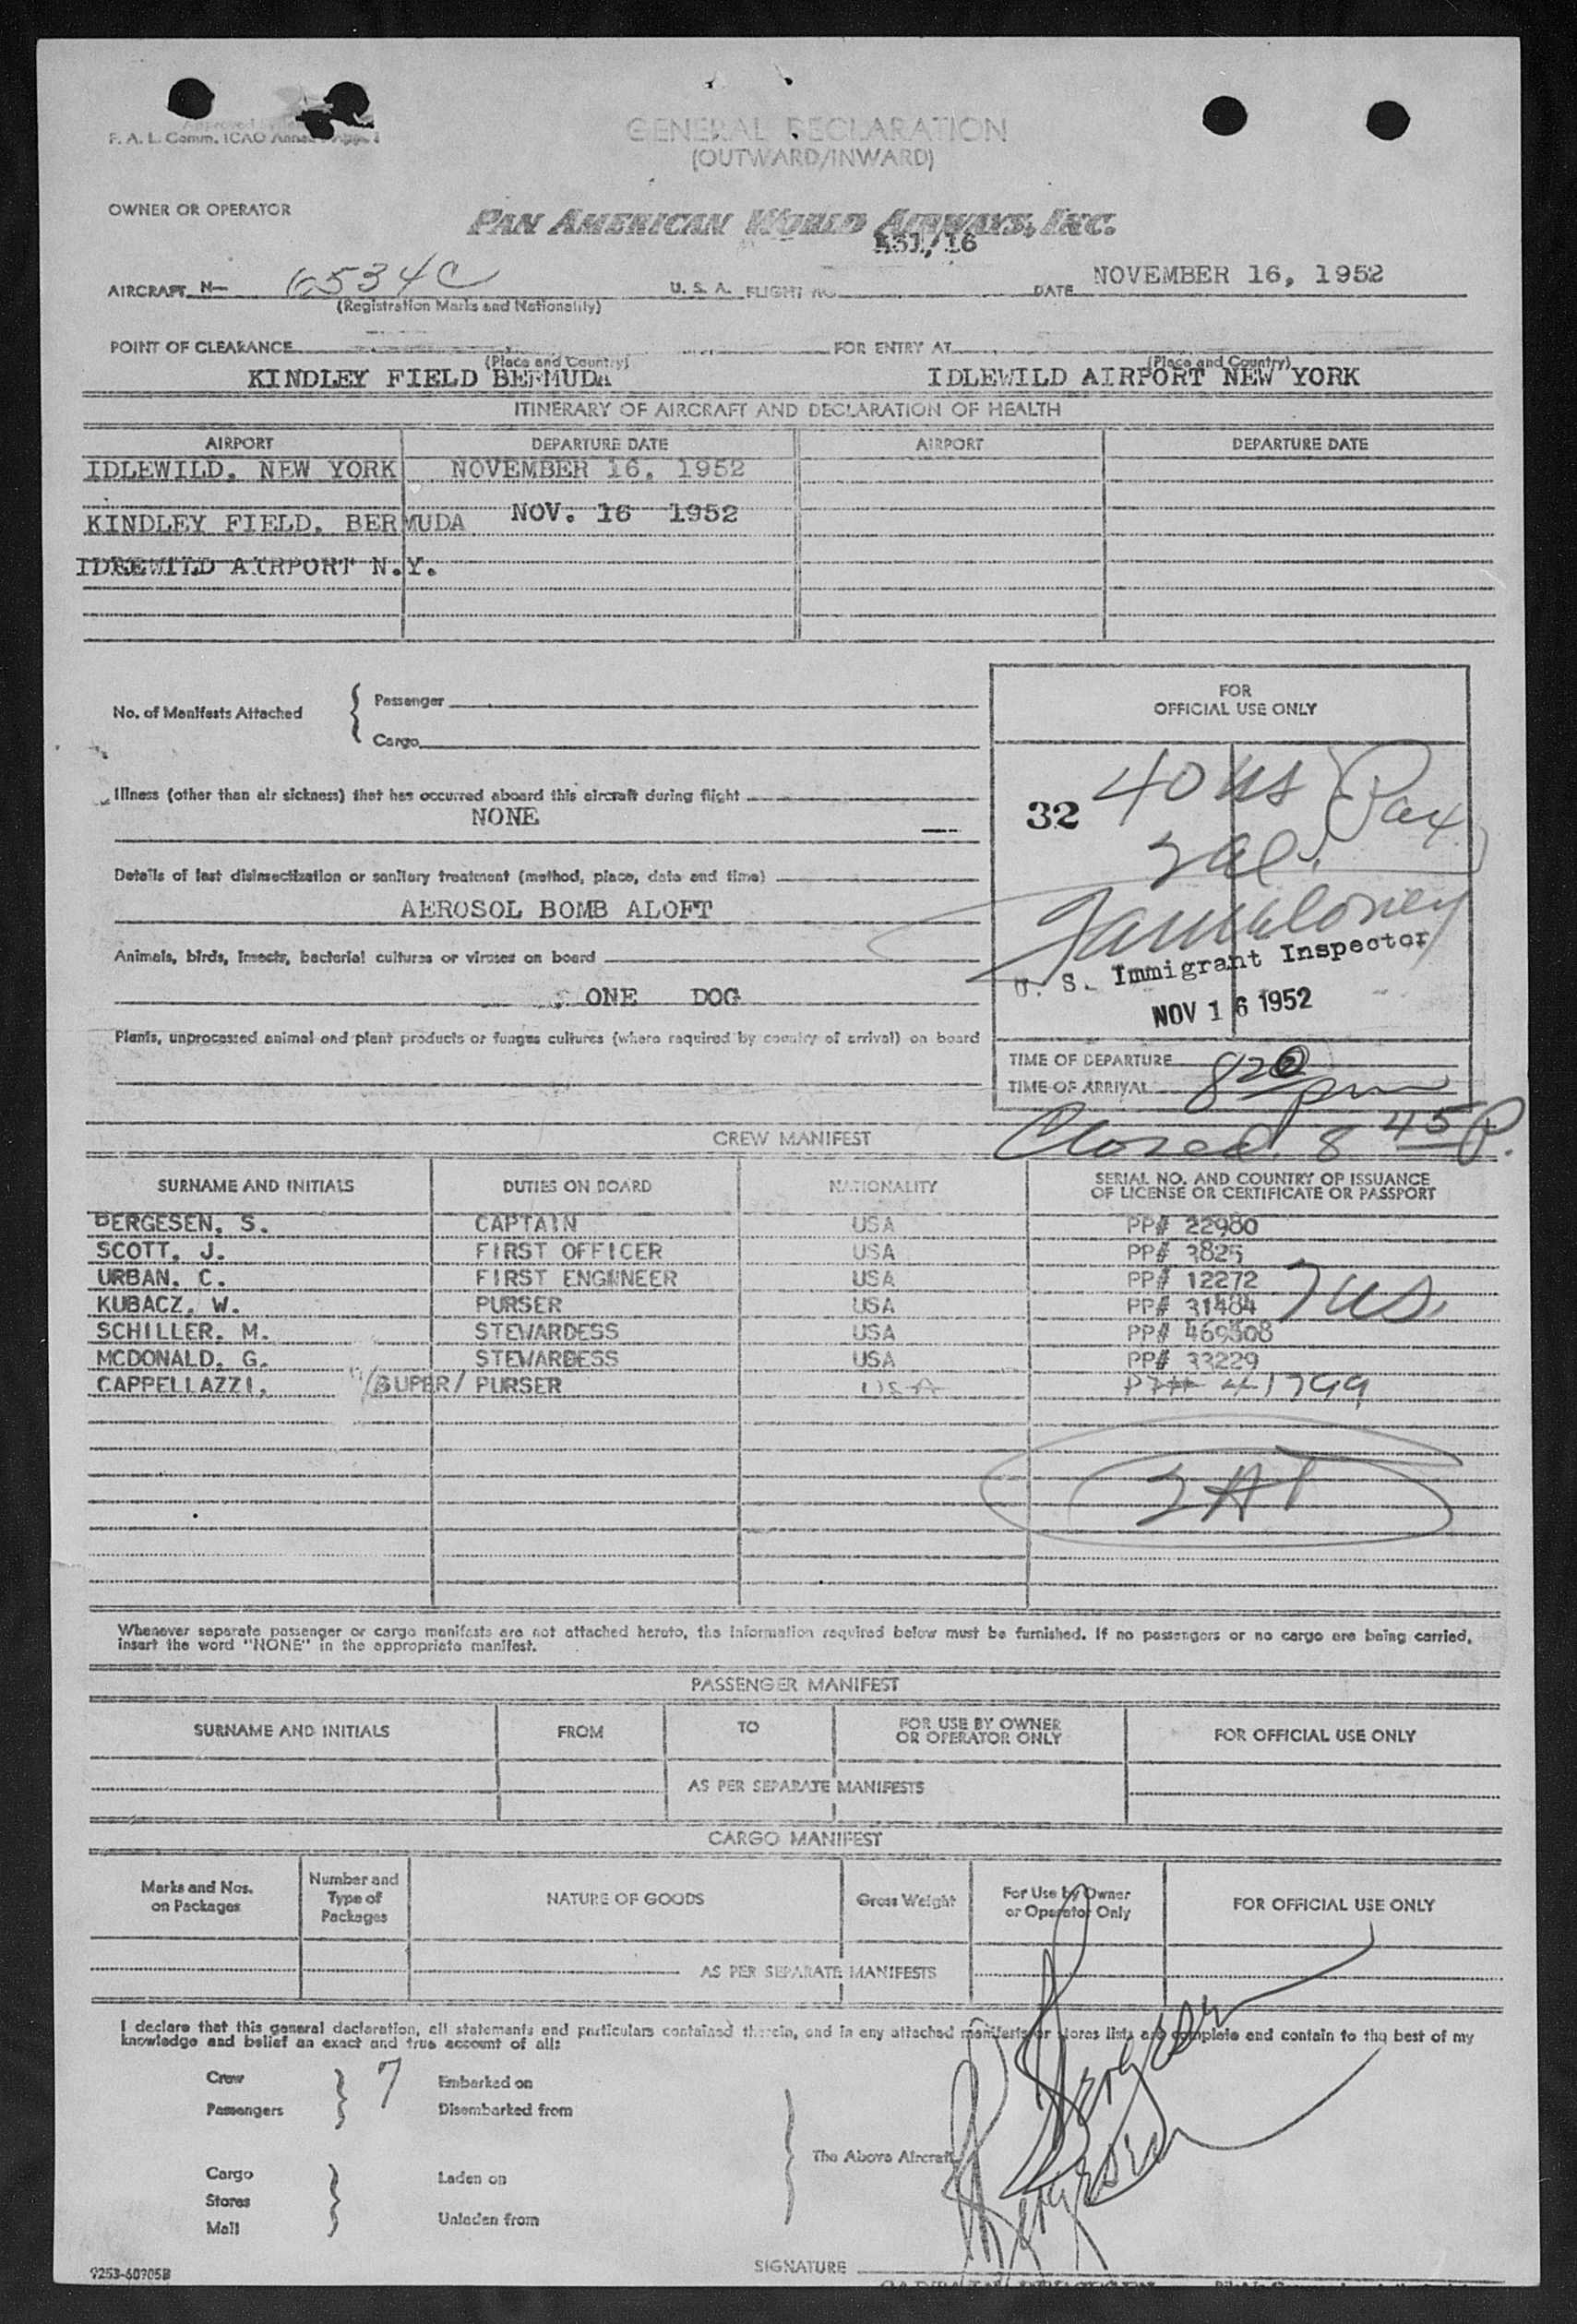 F. A. L. Comm. ICAO Annex
GENERAL DECLARATION
(OUTWARD/INWARD)
OWNER OR OPERATOR
PAN AMERICAN WORLD AIRWAYS, INC.
AIRCRAFT N- 6534C U. S. A. FLIGHT NO. 531/16 DATE NOVEMBER 16, 1952
(Registration Marks and Nationality)
POINT OF CLEARANCE FOR ENTRY AT
(Place and Country) (Place and Country)
KINDLEY FIELD BERMUDA IDLEWILD AIRPORT NEW YORK
ITINERARY OF AIRCRAFT AND DECLARATION OF HEALTH
AIRPORT DEPARTURE DATE AIRPORT DEPARTURE DATE
IDLEWILD, NEW YORK NOVEMBER 16, 1952
KINDLEY FIELD, BERMUDA NOV. 16 1952
IDLEWILD AIRPORT N.Y.
No. of Manifests Attached
Passenger
Cargo
FOR
OFFICIAL USE ONLY
Illness (other than air sickness) that has occurred aboard this aircraft during flight
NONE
32 40 us Pax
2 al.
Details of last disinsectization or sanitary treatment (method, place, date and time)
AEROSOL BOMB ALOFT
Animals, birds, insects, bacterial cultures or viruses on board
ONE DOG
U. S. Immigrant Inspector
NOV 16 1952
Plants, unprocessed animal and plant products or fungus cultures (where required by country of arrival) on board
TIME OF DEPARTURE
TIME OF ARRIVAL 8 20 pm
Closed 8 45 P.
CREW MANIFEST
SURNAME AND INITIALS DUTIES ON BOARD NATIONALITY SERIAL NO. AND COUNTRY OF ISSUANCE
OF LICENSE OR CERTIFICATE OR PASSPORT
BERGESEN, S. CAPTAIN USA PP# 22980
SCOTT, J. FIRST OFFICER USA PP# 3825
URBAN, C. FIRST ENGNNEER USA PP# 12272
KUBACZ, W. PURSER USA PP# 31484 7 us.
SCHILLER, M. STEWARDESS USA PP# 469508
MCDONALD, G. STEWARDESS USA PP# 33229
CAPPELLAZZI, /SUPER/ PURSER USA PP# 41799
Whenever separate passenger or cargo manifests are not attached hereto, the information required below must be furnished. If no passengers or no cargo are being carried,
insert the word "NONE" in the appropriate manifest.
PASSENGER MANIFEST
SURNAME AND INITIALS FROM TO FOR USE BY OWNER
OR OPERATOR ONLY FOR OFFICIAL USE ONLY
AS PER SEPARATE MANIFESTS
CARGO MANIFEST
Marks and Nos.
on Packages
Number and
Type of
Packages
NATURE OF GOODS Gross Weight
For Use by Owner
or Operator Only
FOR OFFICIAL USE ONLY
AS PER SEPARATE MANIFESTS
I declare that this general declaration, all statements and particulars contained therein, and in any attached manifests or stores lists are complete and contain to the best of my
knowledge and belief an exact and true account of all:
Crew 7 Embarked on
Passengers Disembarked from
The Above Aircraft
Cargo Laden on
Stores
Mail Unladen from
SIGNATURE
9253-60705B